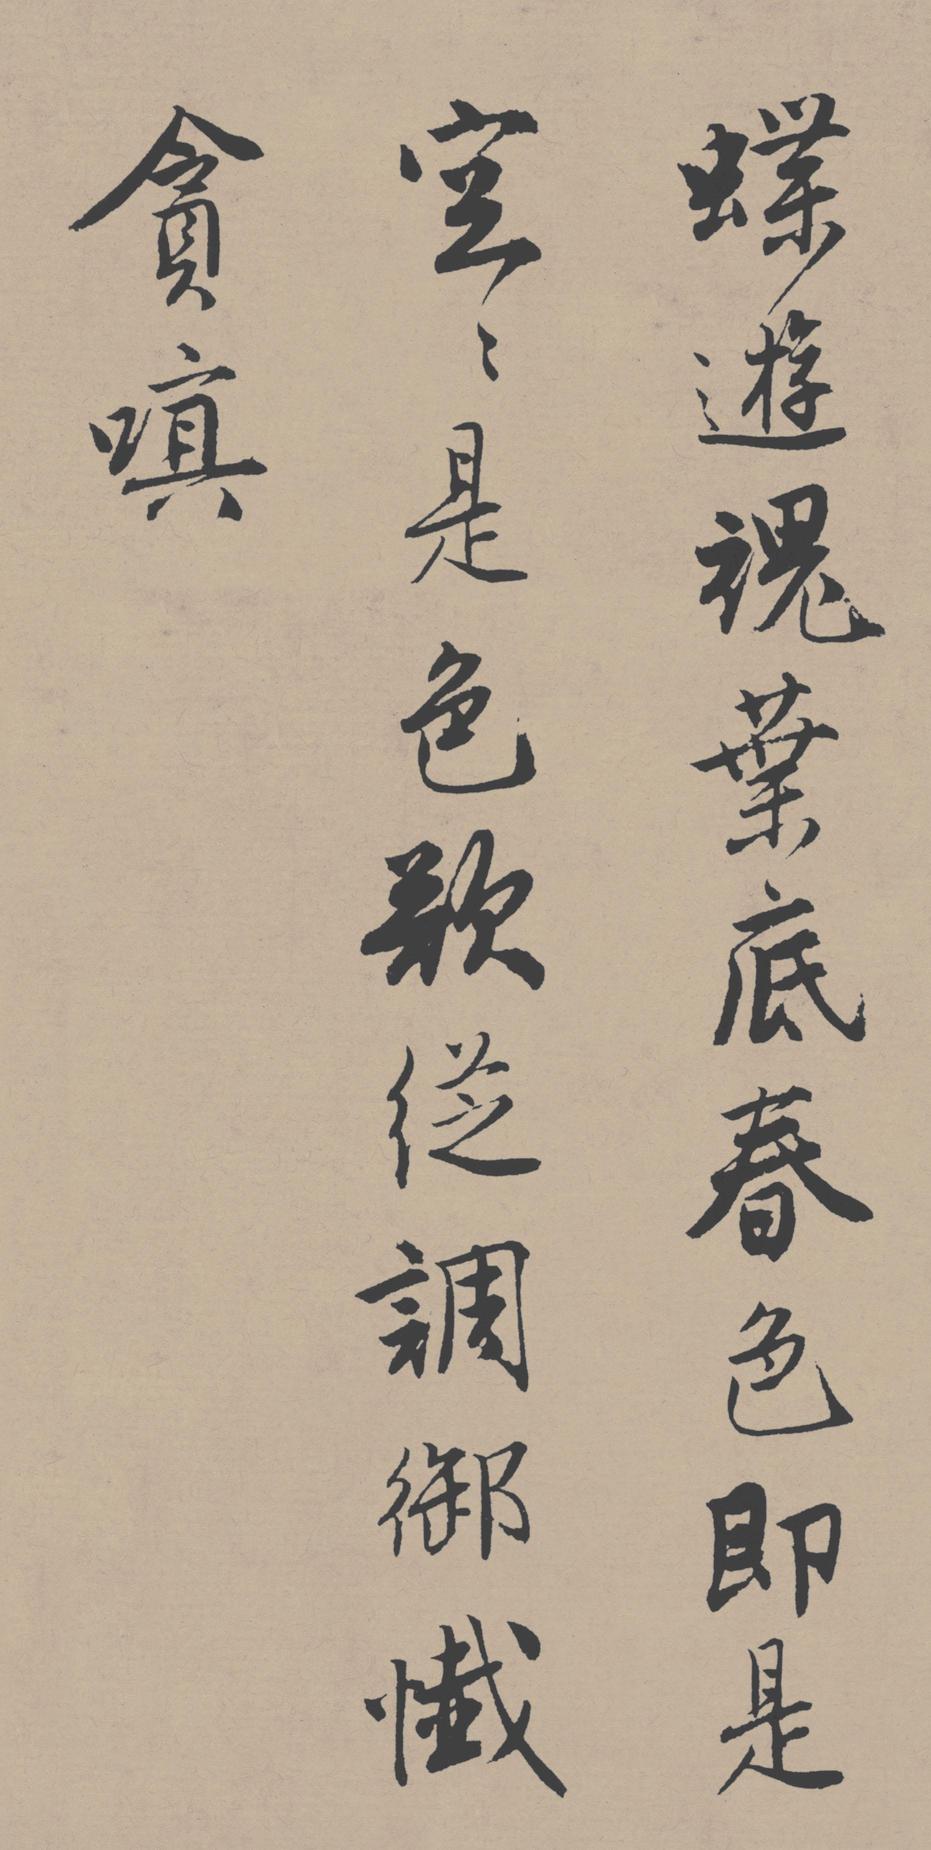 蝶遊魂葉底春色即是
空々是色歌従調御懺
貪嗔